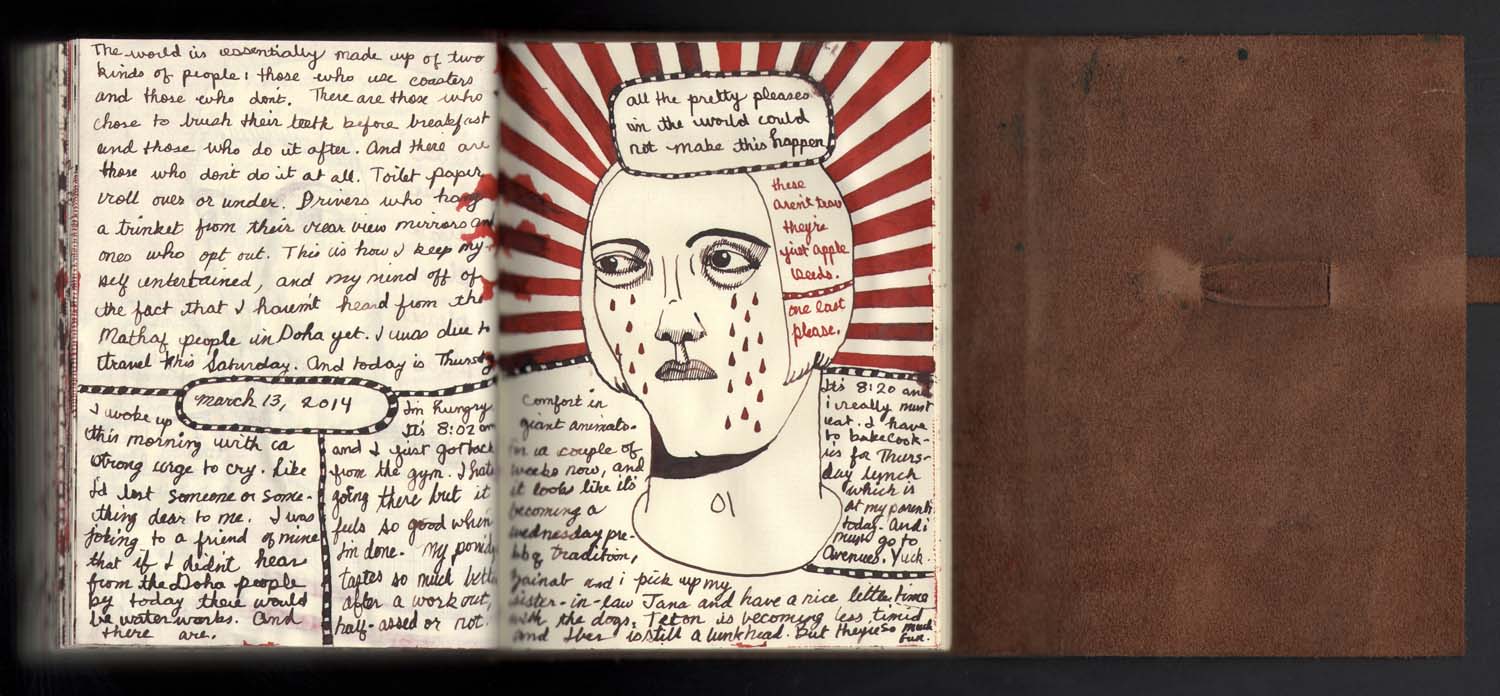 The world is essentially made up of two
kinds of people: those who use coasters
and those who don't. There are those who
chose to brush their teeth before breakfast
and those who do it after. And there are
those who don't do it at all. Toilet paper
roll over or under. Drivers who hang
a trinket from their rear view mirrors and
ones who opt out. This is how I keep my-
self entertained, and my mind off of
the fact that I haven't heard from the
Mathaf people in Doha yet. I was due to
travel this Saturday. And today is Thursday
march 13, 2014
I woke up
this morning with a
strong urge to cry. Like
I'd lost someone or some-
thing dear to me. I was
joking to a friend of mine
that if I didn't hear
from the Doha people
by today there would
be water works. And
there are.
I'm hungry.
It's 8:02 am
and I just got back
from the gym. I hate
going there but it
feels so good when
I'm done. My porridge
tastes so much better
after a work out,
half-assed or not.
all the pretty pleases
in the world could
not make this happen
these
aren't tears
they're
just apple
seeds.
one last
please.
Comfort in
giant animals.
For a couple of
weeks now, and
it looks like it's
becoming a
wednesday pre-
bbq tradition,
Zainab and i pick up my
sister-in-law Jana and have a nice little time
with the dogs. Teton is becoming less timid
and Iber is still a lunkhead. But they're so much
fun.
01
It's 8:20 and
i really must
eat. I have
to bake cook-
ies for Thurs-
day lunch
which is
at my parents
today. And i
must go to
Avenues. Yuck.